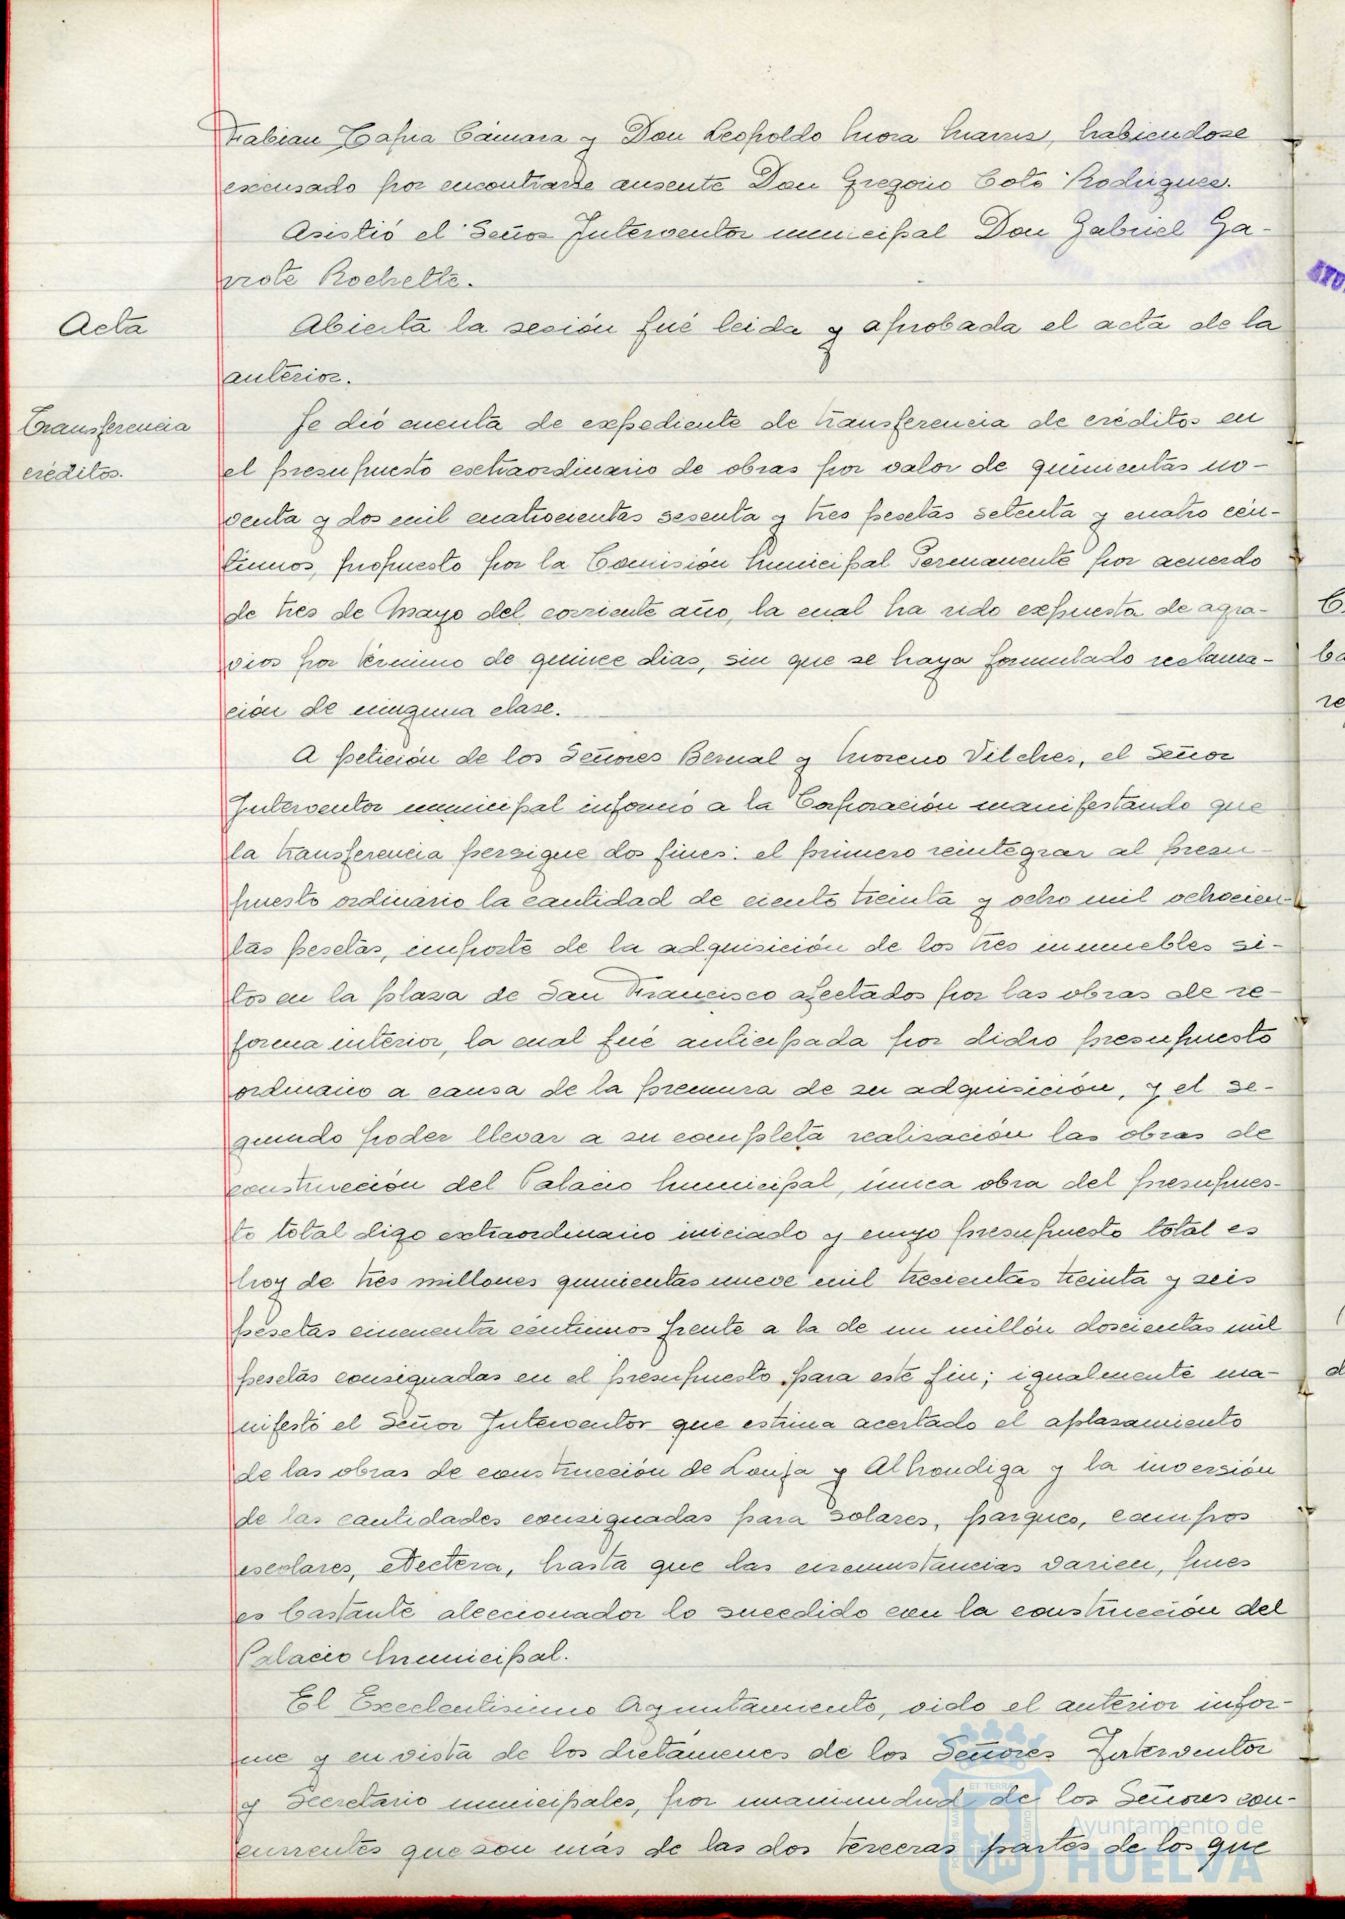 Fabian Tapia Cámara y Don Leopoldo Mora Marrs, habiendose
escusado por encontrarse ausente Don Gregorio Coto Rodriguez.
Asistió el Señor Interventor municipal Don Gabriel Ga-
rrote Rochette.
Acta
Abierta la sesión fué leida y aprobada el acta de la
anterior.
Transferencia
créditos.
Se dió cuenta de expediente de transferencia de créditos en
el presupuesto extraordinario de obras por valor de quinientas no-
venta y dos mil cuatrocientas sesenta y tres pesetas setenta y cuatro cén-
timos, propuesto por la Comisión Municipal Permanente por acuerdo
de tres de Mayo del corriente año, la cual ha sido expuesta de agra-
vios por término de quince dias, sin que se haya formulado reclama-
ción de ninguna clase.
A petición de los Señores Bernal y Moreno Vilches, el Señor
Interventor municipal informó a la Corporación manifestando que
la transferencia persigue dos fines: el primero reintegrar al presu-
puesto ordinario la cantidad de ciento treinta y ocho mil ochocien-
tas pesetas, importe de la adquisición de los tres inmuebles si-
tos en la plaza de San Francisco afectados por las obras de re-
forma interior, la cual fué anticipada por dicho presupuesto
ordinario a causa de la premura de su adquisición, y el se-
gundo poder llevar a su completa realización las obras de
construcción del Palacio Municipal, única obra del presupues-
to total digo extraordinario iniciado y cuyo presupuesto total es
hoy de tres millones quinientas nueve mil trecientas treinta y seis
pesetas cincuenta céntimos frente a la de un millón doscientas mil
pesetas consignadas en el presupuesto para este fin; igualmente ma-
nifestó el Señor Interventor que estima acertado el aplazamiento
de las obras de construcción de Lonja y Alhondiga y la inversión
de las cantidades consignadas para solares, parques, campos
escolares, etectera, hasta que las circunstancias varien, pues
es bastante aleccionador lo sucedido con la construcción del
Palacio Municipal.
El Excelentisimo Ayuntamiento, oido el anterior infor-
me y en vista de los dictámenes de los Señores Interventor
y Secretario municipales, por unanimidad de los Señores con-
currentes que son más de las dos terceras partes de los que
Ayuntamiento de
HUELVA